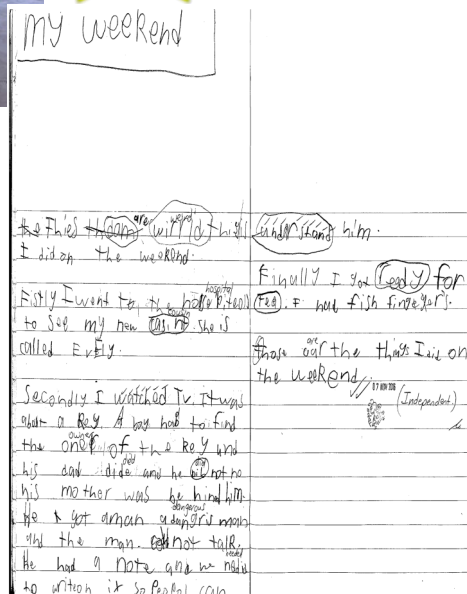 my weekend
Thies are weird wirrid thigs
I did on the weekend.
Fistly I went to the hospital
to see my new cousin casint. She is
called Evely.
Secondly I watched Tv. It was
about a key. A boy had to find
the owner oner of the key und
his dad died dide and he did not no
his mother was be hind him.
He got a man a dangerous dangris man
and the man not talk.
He had a note and we needed
to write on it so peopel can
understand him.
Finally I got ready for
tea. I had fish fingers.
Those are our the things I did on
the weekend
07 NOV 2016
(Independent)